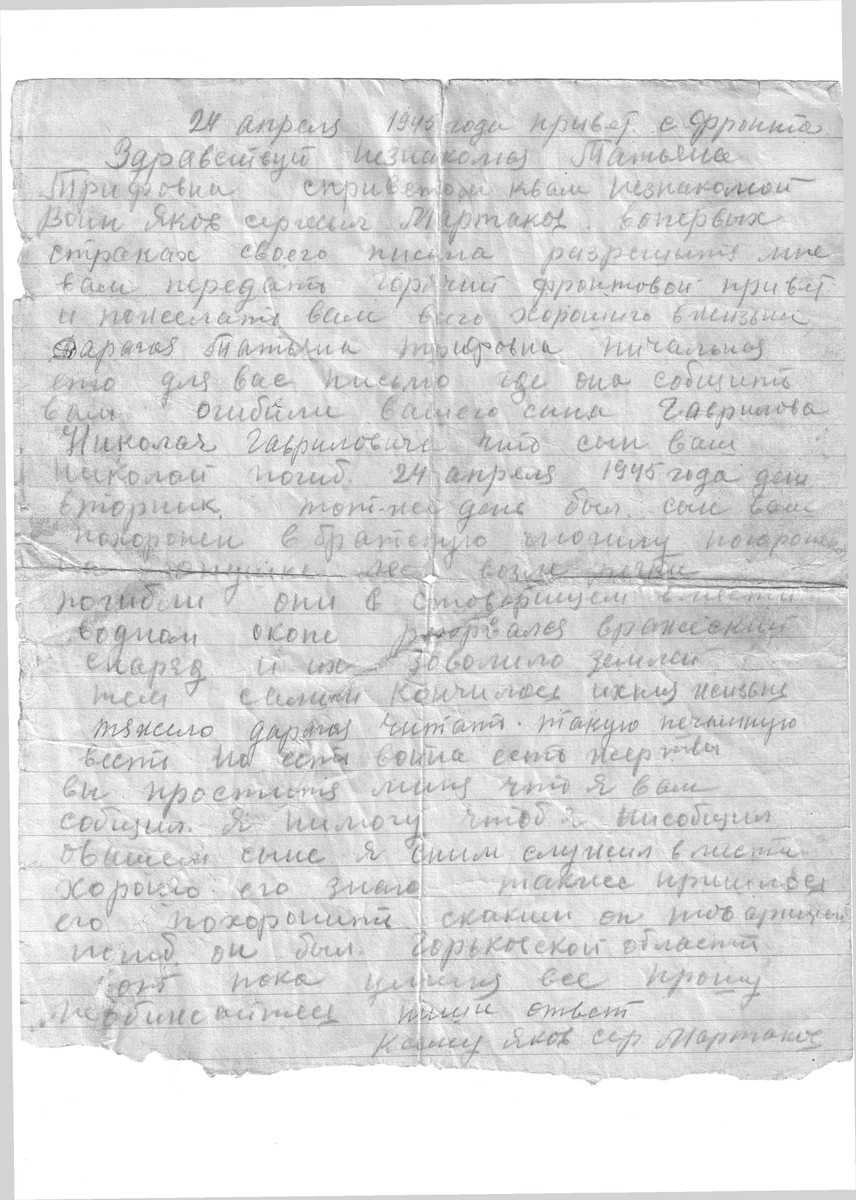 24 апреля 1945 года привет с фронта
Здравствуй незнакомая Татьяна
Трифовна сприветом квам незнакомой
воин Яков сергеевич Мартаков. вопервых
страках своего письма разрешите мне
вам передать горячий фронтовой привет
и пожелать вам всего хорошиго вжизьни
Дарагая Татьяна трифовна пичальная
ето для вас письмо где она собщить
вам огибили вашего сина Гаврилова
Николая Гавриловича что сын ваш
Николай погиб 24 апреля 1945 года ден
вторник тот-же день был сын ваш
похоронен в братскую могилу похоронен
на опушке леса возли
погибли они в стоварищем вмести
водном окопе разорвался вражеский
снаряд и их зовалило землей
тем самым кончилось ихняя жизьнь
тяжело дарагая читат. такую печальную
весть но есть война есть жертвы
вы простите миня что я вам
собщил. Я нимогу чтоб я нисобщил
овашем сыне я сним служил вмести
хорошо его знаю такжее пришлось
его похоронить скаким он товарищем
погиб он был Горьковской области
вот пока уминя все прошу
необижайтесь пиши ответ
Яков сер Мартаков